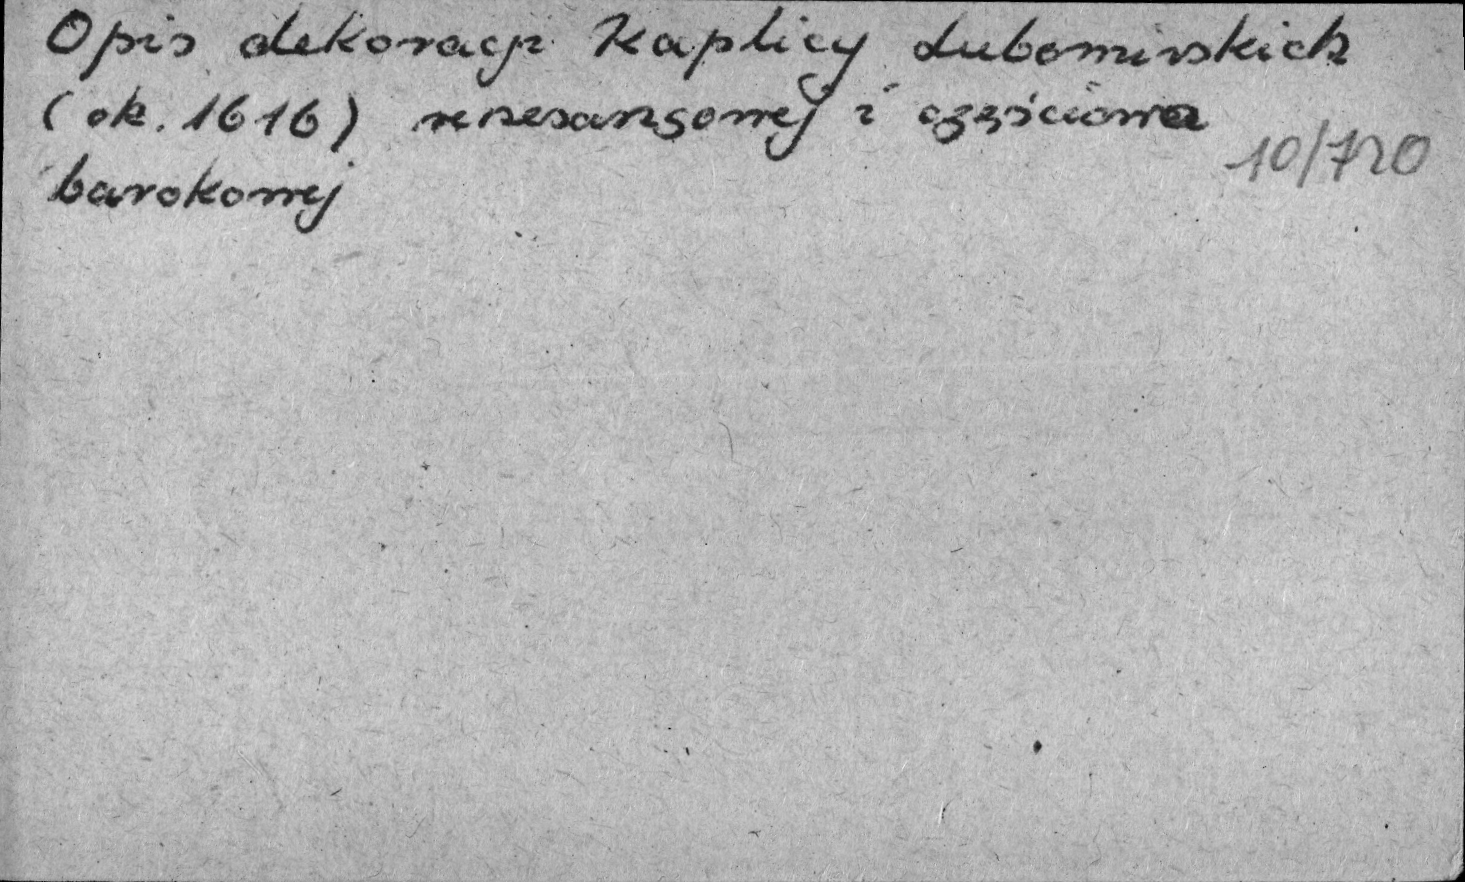 Opis dekoracji Kaplicy Lubomirskich
(ok. 1616) renesansowej i częściowo
barokowej
10/720